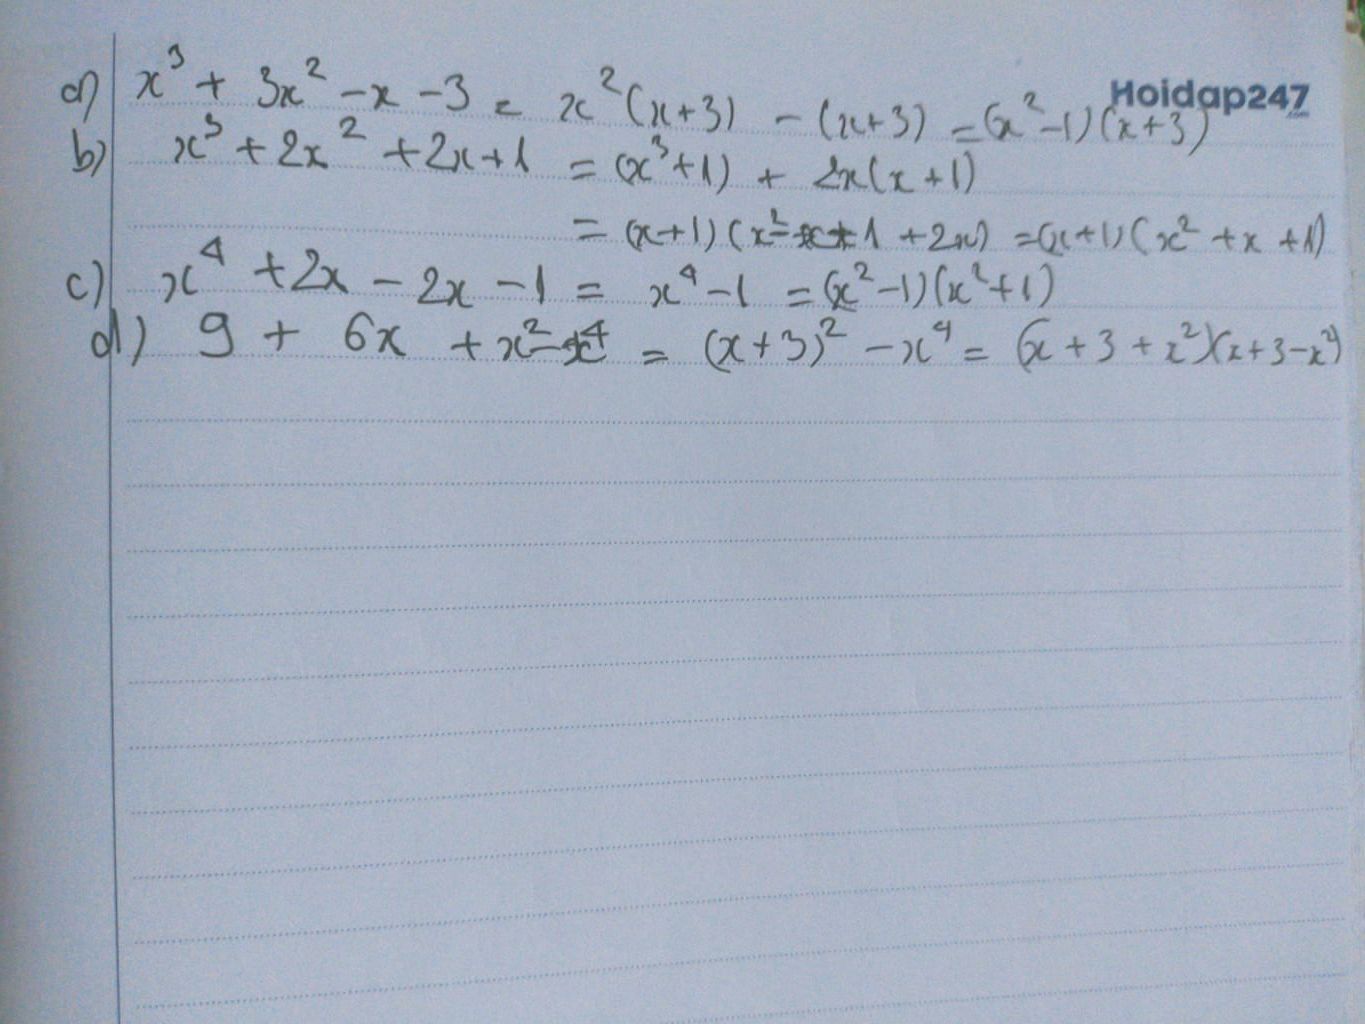 Hoidap247
.com
a) x³ + 3x² - x - 3 = x²(x+3) - (x+3) = (x²-1)(x+3)
b) x³ + 2x² + 2x + 1 = (x³+1) + 2x(x+1)
= (x+1)(x²-x+1+2x) = (x+1)(x²+x+1)
c) x⁴ + 2x - 2x - 1 = x⁴ - 1 = (x²-1)(x²+1)
d) 9 + 6x + x² - x⁴ = (x+3)² - x⁴ = (x+3+x²)(x+3-x²)